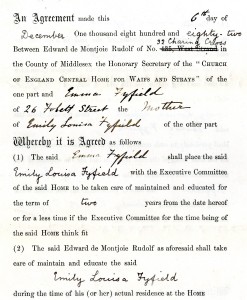 An Agreement made this 6th day of
December One thousand eight hundred and eighty-two
33 Charing Cross
Between Edward de Montjoie Rudolf of No. 135, West Strand in
the County of Middlesex the Honorary Secretary of the "CHURCH
OF ENGLAND CENTRAL HOME FOR WAIFS AND STRAYS" of the
one part and Emma Fyfield
of 26 Street the Mother
of Emily Louisa Fyfield of the other part
Whereby it is Agreed as follows
(1) The said Emma Fyfield shall place the said
Emily Louisa Fyfield with the Executive Committee
of the said HOME to be taken care of maintained and educated for
the term of two years from the date hereof
or for a less time if the Executive Committee for the time being of
the said HOME think fit
(2) The said Edward de Montjoie Rudolf as aforesaid shall take
care of maintain and educate the said
Emily Louisa Fyfield
during the time of his (or her) actual residence at the HOME